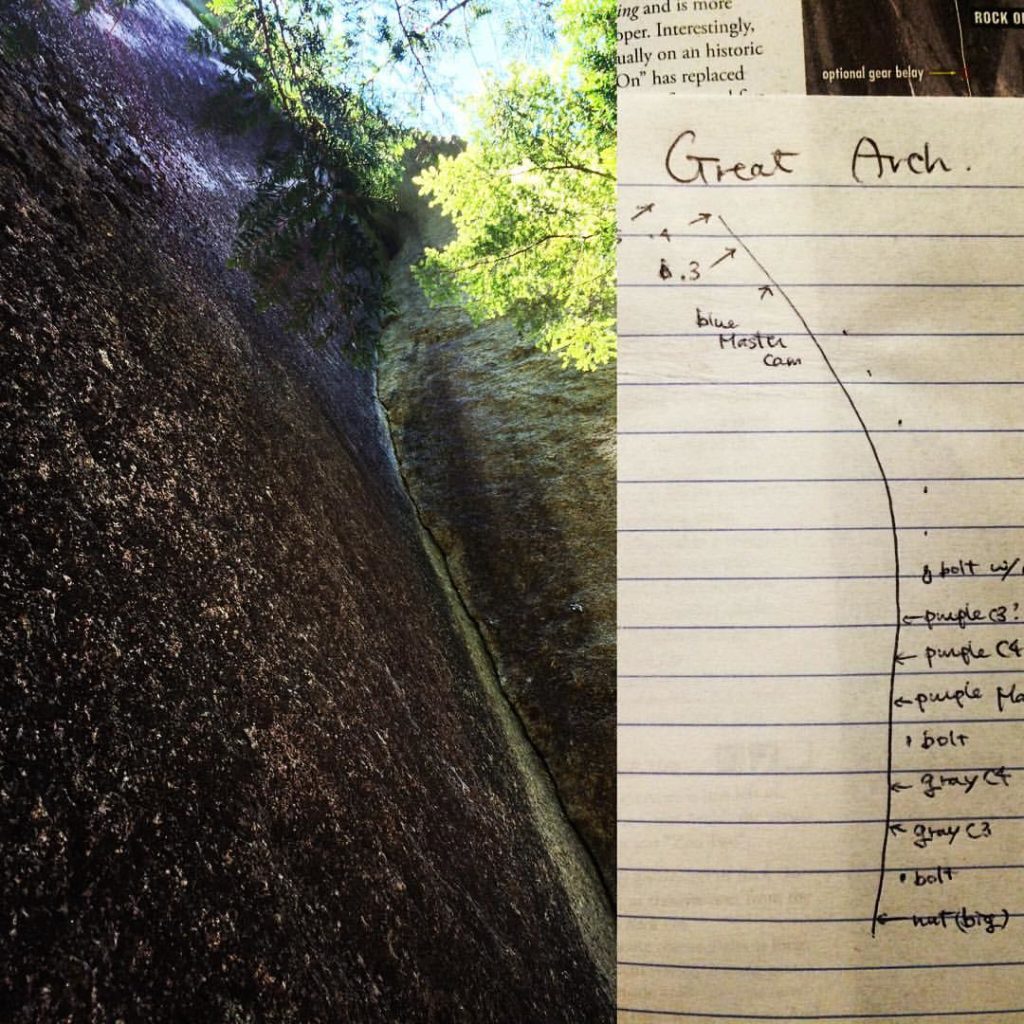 ing and is more
oper. Interestingly,
ually on an historic
On" has replaced
ROCK O
optional gear belay
Great Arch.
.4
.3
blue
Master
cam
bolt w/
purple C3?
purple C4
purple Ma
bolt
gray C4
gray C3
bolt
nut (big)